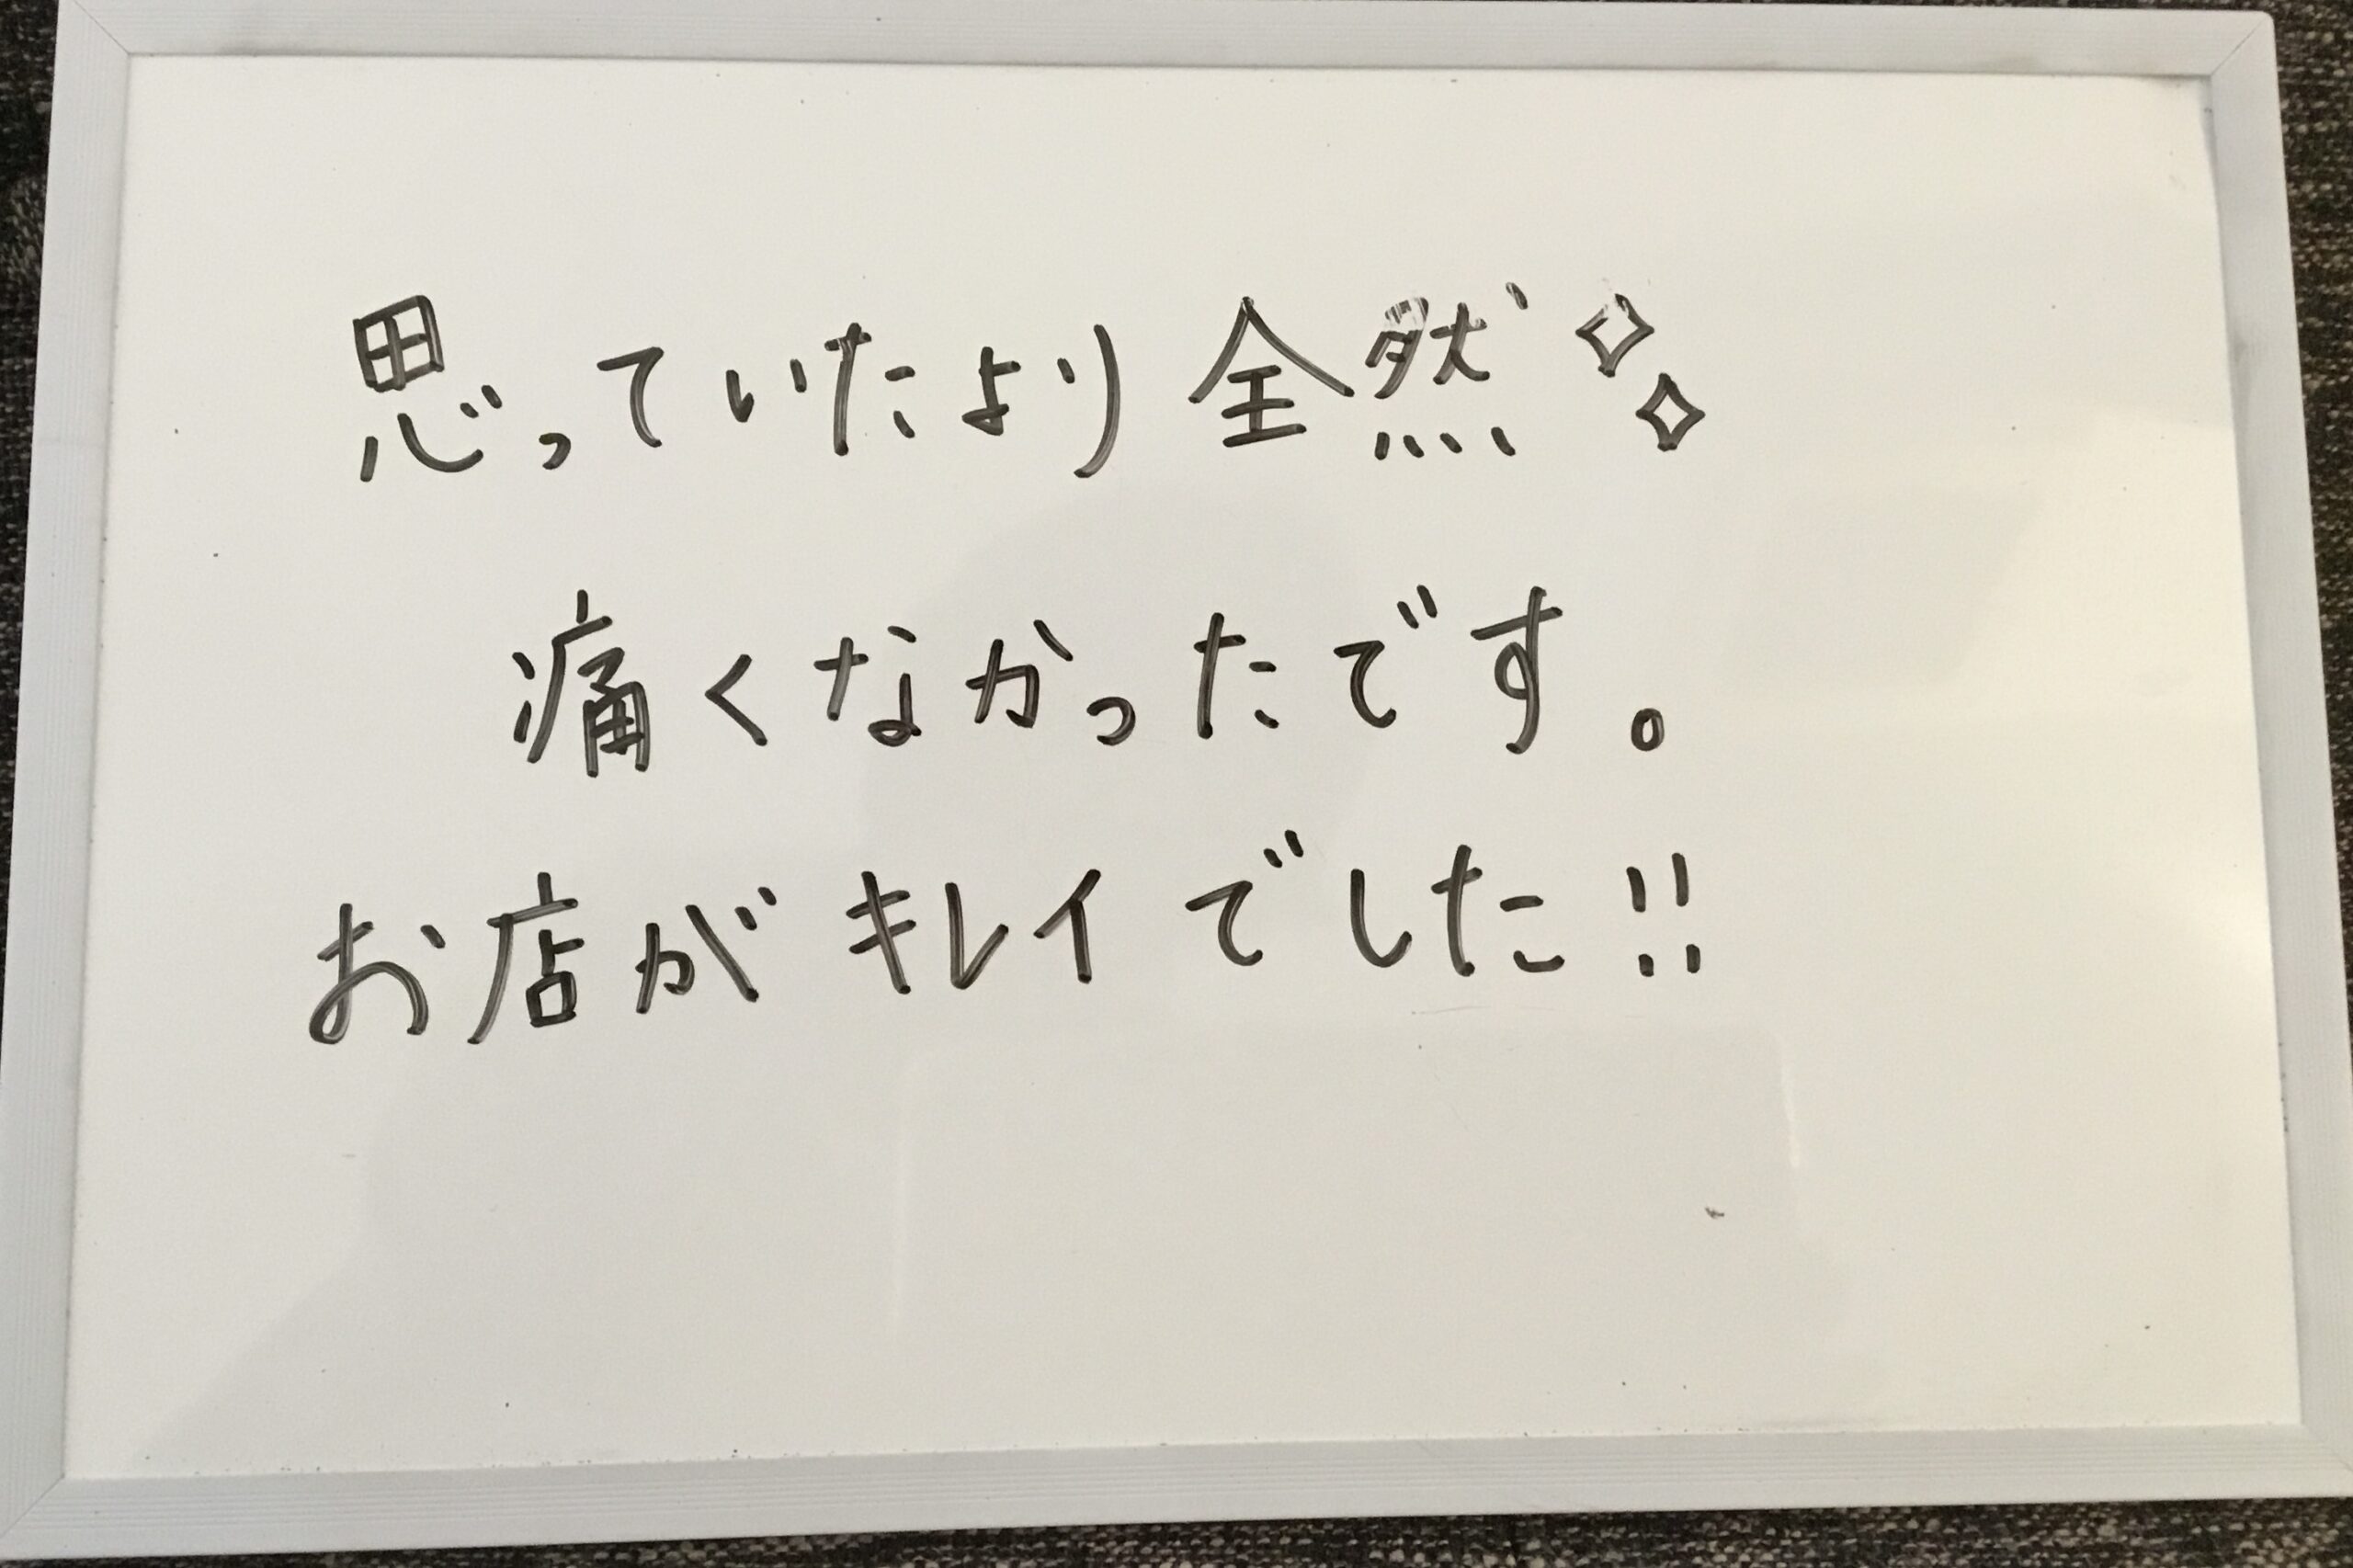 思っていたより全然✧✧
痛くなかったです。
お店がキレイでした!!